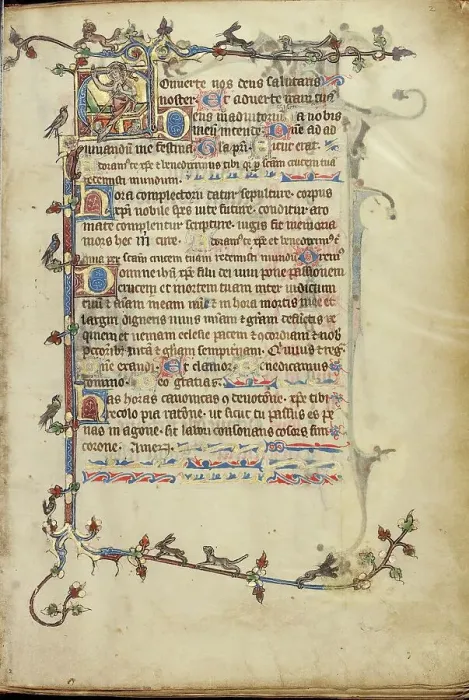 2
Converte nos deus salutaris
noster. Et adverte iram tuã
Deus in adiutoriũ. a nobis
meũ intende. Dñe ad ad
iuvandũ me festina. Gla pri. Sicut erat.
Adoram⁹ te xp̃e & benedicimus tibi q̃ p scam crucem tua
redemisti mundum.
Hora completorii datur sepulture. corpus
xp̃i nobile spes vite future. conditur aro
mate complentur scripture. iugis sit memoria
mors hec m̃ cure. Adoram⁹ te xp̃e et benedicim⁹ t̃
quia per scãm crucem tuam redemisti mundũ. Orem⁹
Domine ihũ xp̃e fili dei vivi pone passionem
crucem et mortem tuam inter iudicium
tuũ & aĩam meam nũc & in hora mortis mee et
largiri digneris vivis mĩam & gr̃am defũctis re
quiem et veniam ecclesie pacem & ɔcordiam & nob
peccorib; vitã & glĩam sempit̃nam. Qui vivis & reg.
Dñe exaudi. Et clamor. Benedicamus
domino. Deo gratias.
Has horas canonicas c̃ devotõne. xp̃e tibi
recolo pia ratõne. ut sicut tu passus es pe
nas in agone. sic labori consonans cosors sim
corone. Amen.